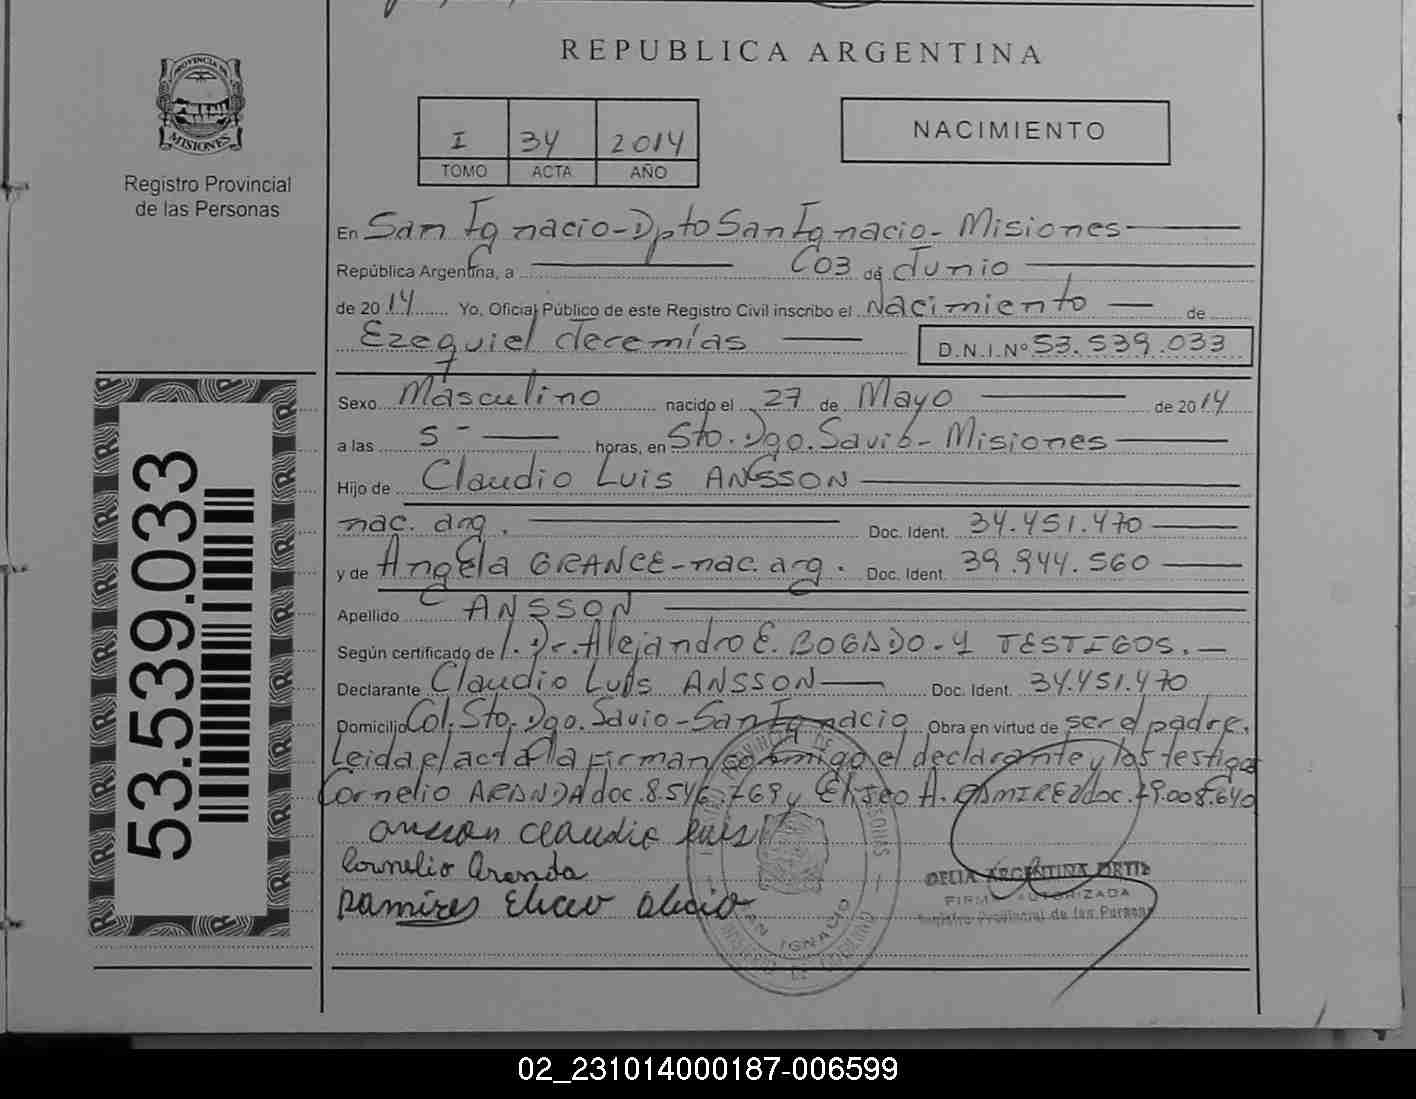 REPUBLICA ARGENTINA
PROVINCIA DE
MISIONES
Registro Provincial
de las Personas
I 34 2014
TOMO ACTA AÑO
NACIMIENTO
En San Ignacio-Dpto San Ignacio- Misiones
República Argentina, a 03 de Junio
de 2014 Yo, Oficial Público de este Registro Civil inscribo el Nacimiento de
Ezequiel Jeremías D.N.I.Nº 53.539.033
Sexo Masculino nacido el 27 de Mayo de 2014
a las 5 - horas, en Sto. Dgo. Savio- Misiones
Hijo de Claudio Luis ANSSON
nac. arg. Doc. Ident. 34.451.470
y de Angela GRANCE-nac. arg. Doc. Ident. 39.944.560
Apellido ANSSON
Según certificado de l. Dr. Alejandro E. BOGADO-Y TESTIGOS.
Declarante Claudio Luis ANSSON Doc. Ident. 34.451.470
Domicilio Col. Sto. Dgo. Savio-San Ignacio Obra en virtud de ser el padre.
Leida el acta la firman conmigo el declarante y los testigos
Cornelio ARANDA doc. 8.546.769 y Eliseo A. RAMIREZ doc. 29.008.640
ansson claudio luis
Cornelio Aranda
Ramires Eliceo
SAN IGNACIO
DELIA ARGENTINA ORTIZ
FIRMA AUTORIZADA
Registro Provincial de las Personas
53.539.033
02_231014000187-006599